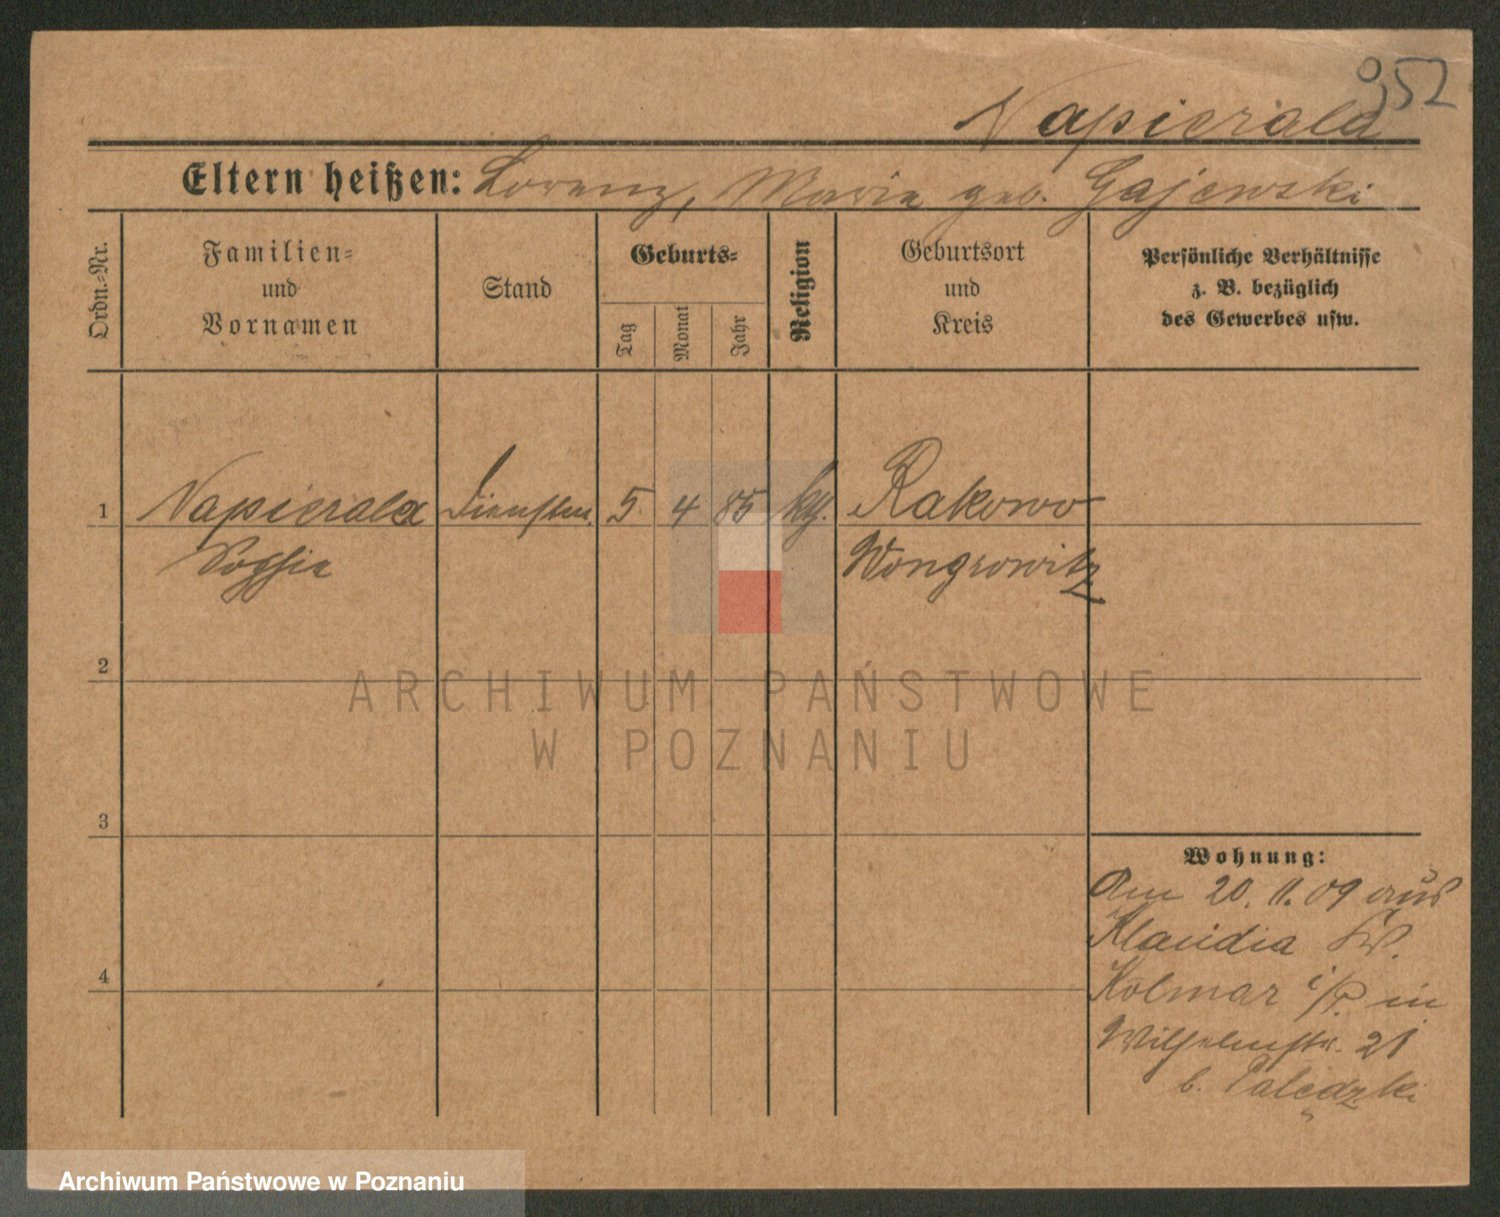 952
Napierala
Eltern heißen: Lorenz, Marie geb. Gajewski
Ordn.-Nr.
Familien-
und
Vornamen
Stand
Geburts-
Tag
Monat
Jahr
Religion
Geburtsort
und
Kreis
Persönliche Verhältnisse
z. B. bezüglich
des Gewerbes usw.
1 Napierala Dienstm. 5 4 85 kth. Rakowo
Sophie Wongrowitz
2
ARCHIWUM PAŃSTWOWE
W POZNANIU
3
Wohnung:
Am 20. 11. 09 aus
Klaudia Kr.
4
Kolmar i/P. in
Wilhelmstr. 21
b. Palędzki
Archiwum Państwowe w Poznaniu